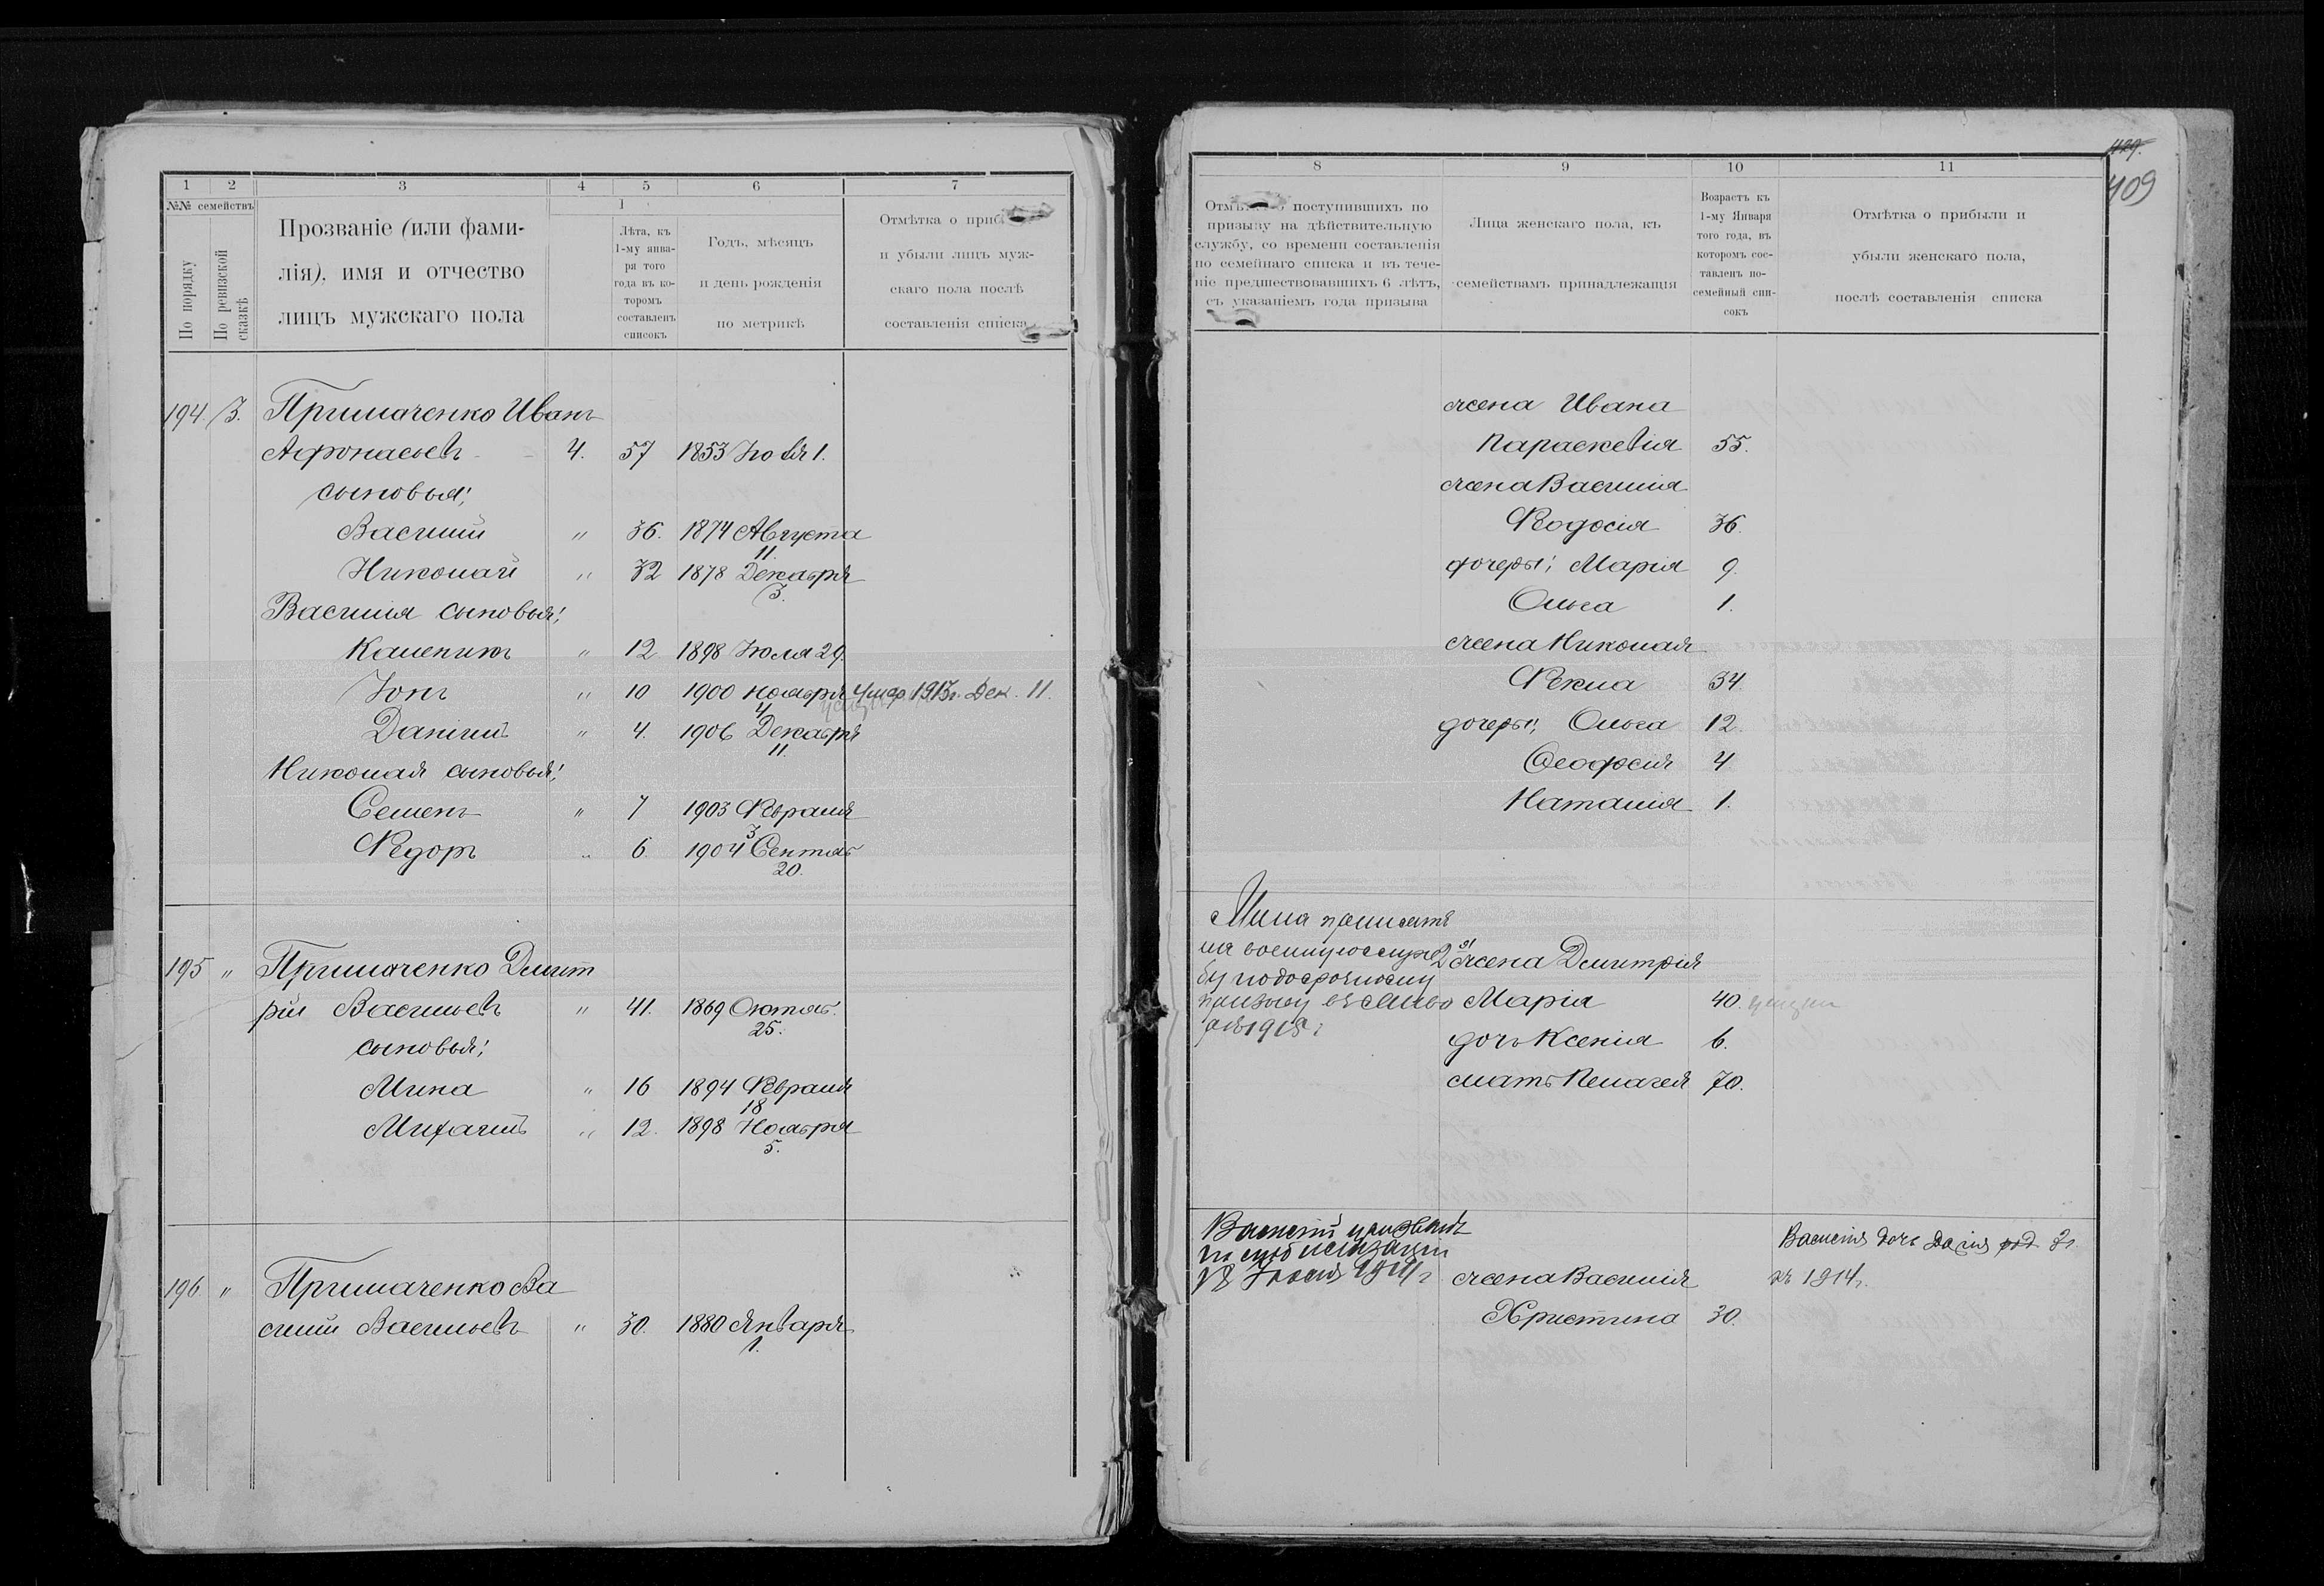 1 2 3 4 5 6 7
№№ семействъ
По порядку
По ревизской сказкѣ
Прозваніе (или фами-
лія), имя и отчество
лицъ мужскаго пола
1
Лѣта, къ
1-му янва-
ря того
года въ ко-
торомъ
составленъ
списокъ
Годъ, мѣсяцъ
и день рожденія
по метрикѣ
Отмѣтка о
и убыли лицъ муж-
скаго пола послѣ
составленія списка
194 3. Примаченко Иванъ
Афонасьевъ 4. 57 1853 1.
сыновья:
Василий " 36. 1874 Августа
11.
Николай " 32 1878 Декабря
3.
Василія сыновья:
Каленикъ " 12 1898 Іюля 29.
Іонъ " 10 1900 ноября умер 1913г. Дек. 11.
4
Даніилъ " 4. 1906 Декабря
11.
Николая сыновья:
Семенъ " 7 1903 Февраля
3
Федоръ " 6. 1904 Сентяб
20.
195 " Примаченко Димит
рій Васильевъ " 41. 1869 Октяб.
25.
сыновья:
Мина " 16 1894 Февраля
18
Михаилъ " 12. 1898 Ноября
5.
196 " Примаченко Ва
силий Васильевъ " 30. 1880 Января
1.
8 9 10 11
409
поступившихъ по
призыву на дѣйствительную
службу, со времени составленія
по семейнаго списка и въ тече-
ніе предшествовавшихъ 6 лѣтъ,
съ указаніемъ года призыва
Лица женскаго пола, къ
семействамъ принадлежащія
Возрастъ къ
1-му Января
того года, въ
которомъ сос-
тавленъ по-
семейный спи-
сокъ
Отмѣтка о прибыли и
убыли женскаго пола,
послѣ составленія списка
жена Ивана
Параскевія 55.
жена Василія
Феодосія 36.
дочеры: Марія 9.
Ольга 1.
жена Николая
Фекла 34.
дочеры: Ольга 12.
Феодосія 4
Наталія 1.
Мина принятъ
на военную служ
бу по досрочному
призыву въ
1915г
2я жена Димитрія
Марія 40.
дочь Ксенія 6.
мать Пелагея 70.
Василій призванъ
по мобилизаціи
18 Іюля 1914г
жена Василія
Христина 30.
Василія дочь род 2г.
къ 1914г.